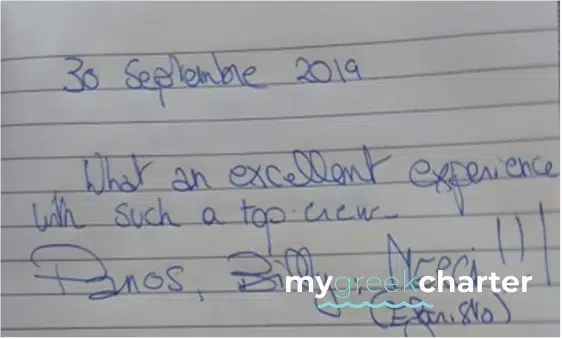 30 Septembre 2019
What an excellent experience
with such a top crew
Panos, Billy,
mygreekcharter